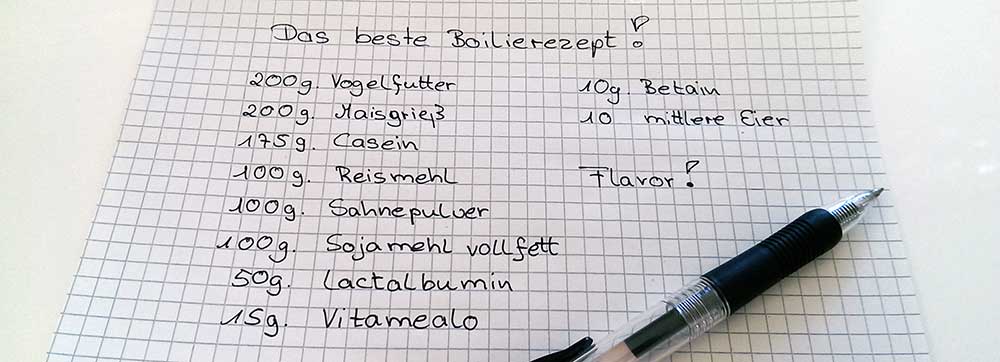 Das beste Boilierezept!
200g. Vogelfutter
200g. Maisgrieß
175g. Casein
100g. Reismehl
100g. Sahnepulver
100g. Sojamehl vollfett
50g. Lactalbumin
15g. Vitamealo
10g. Betain
10 mittlere Eier
Flavor!